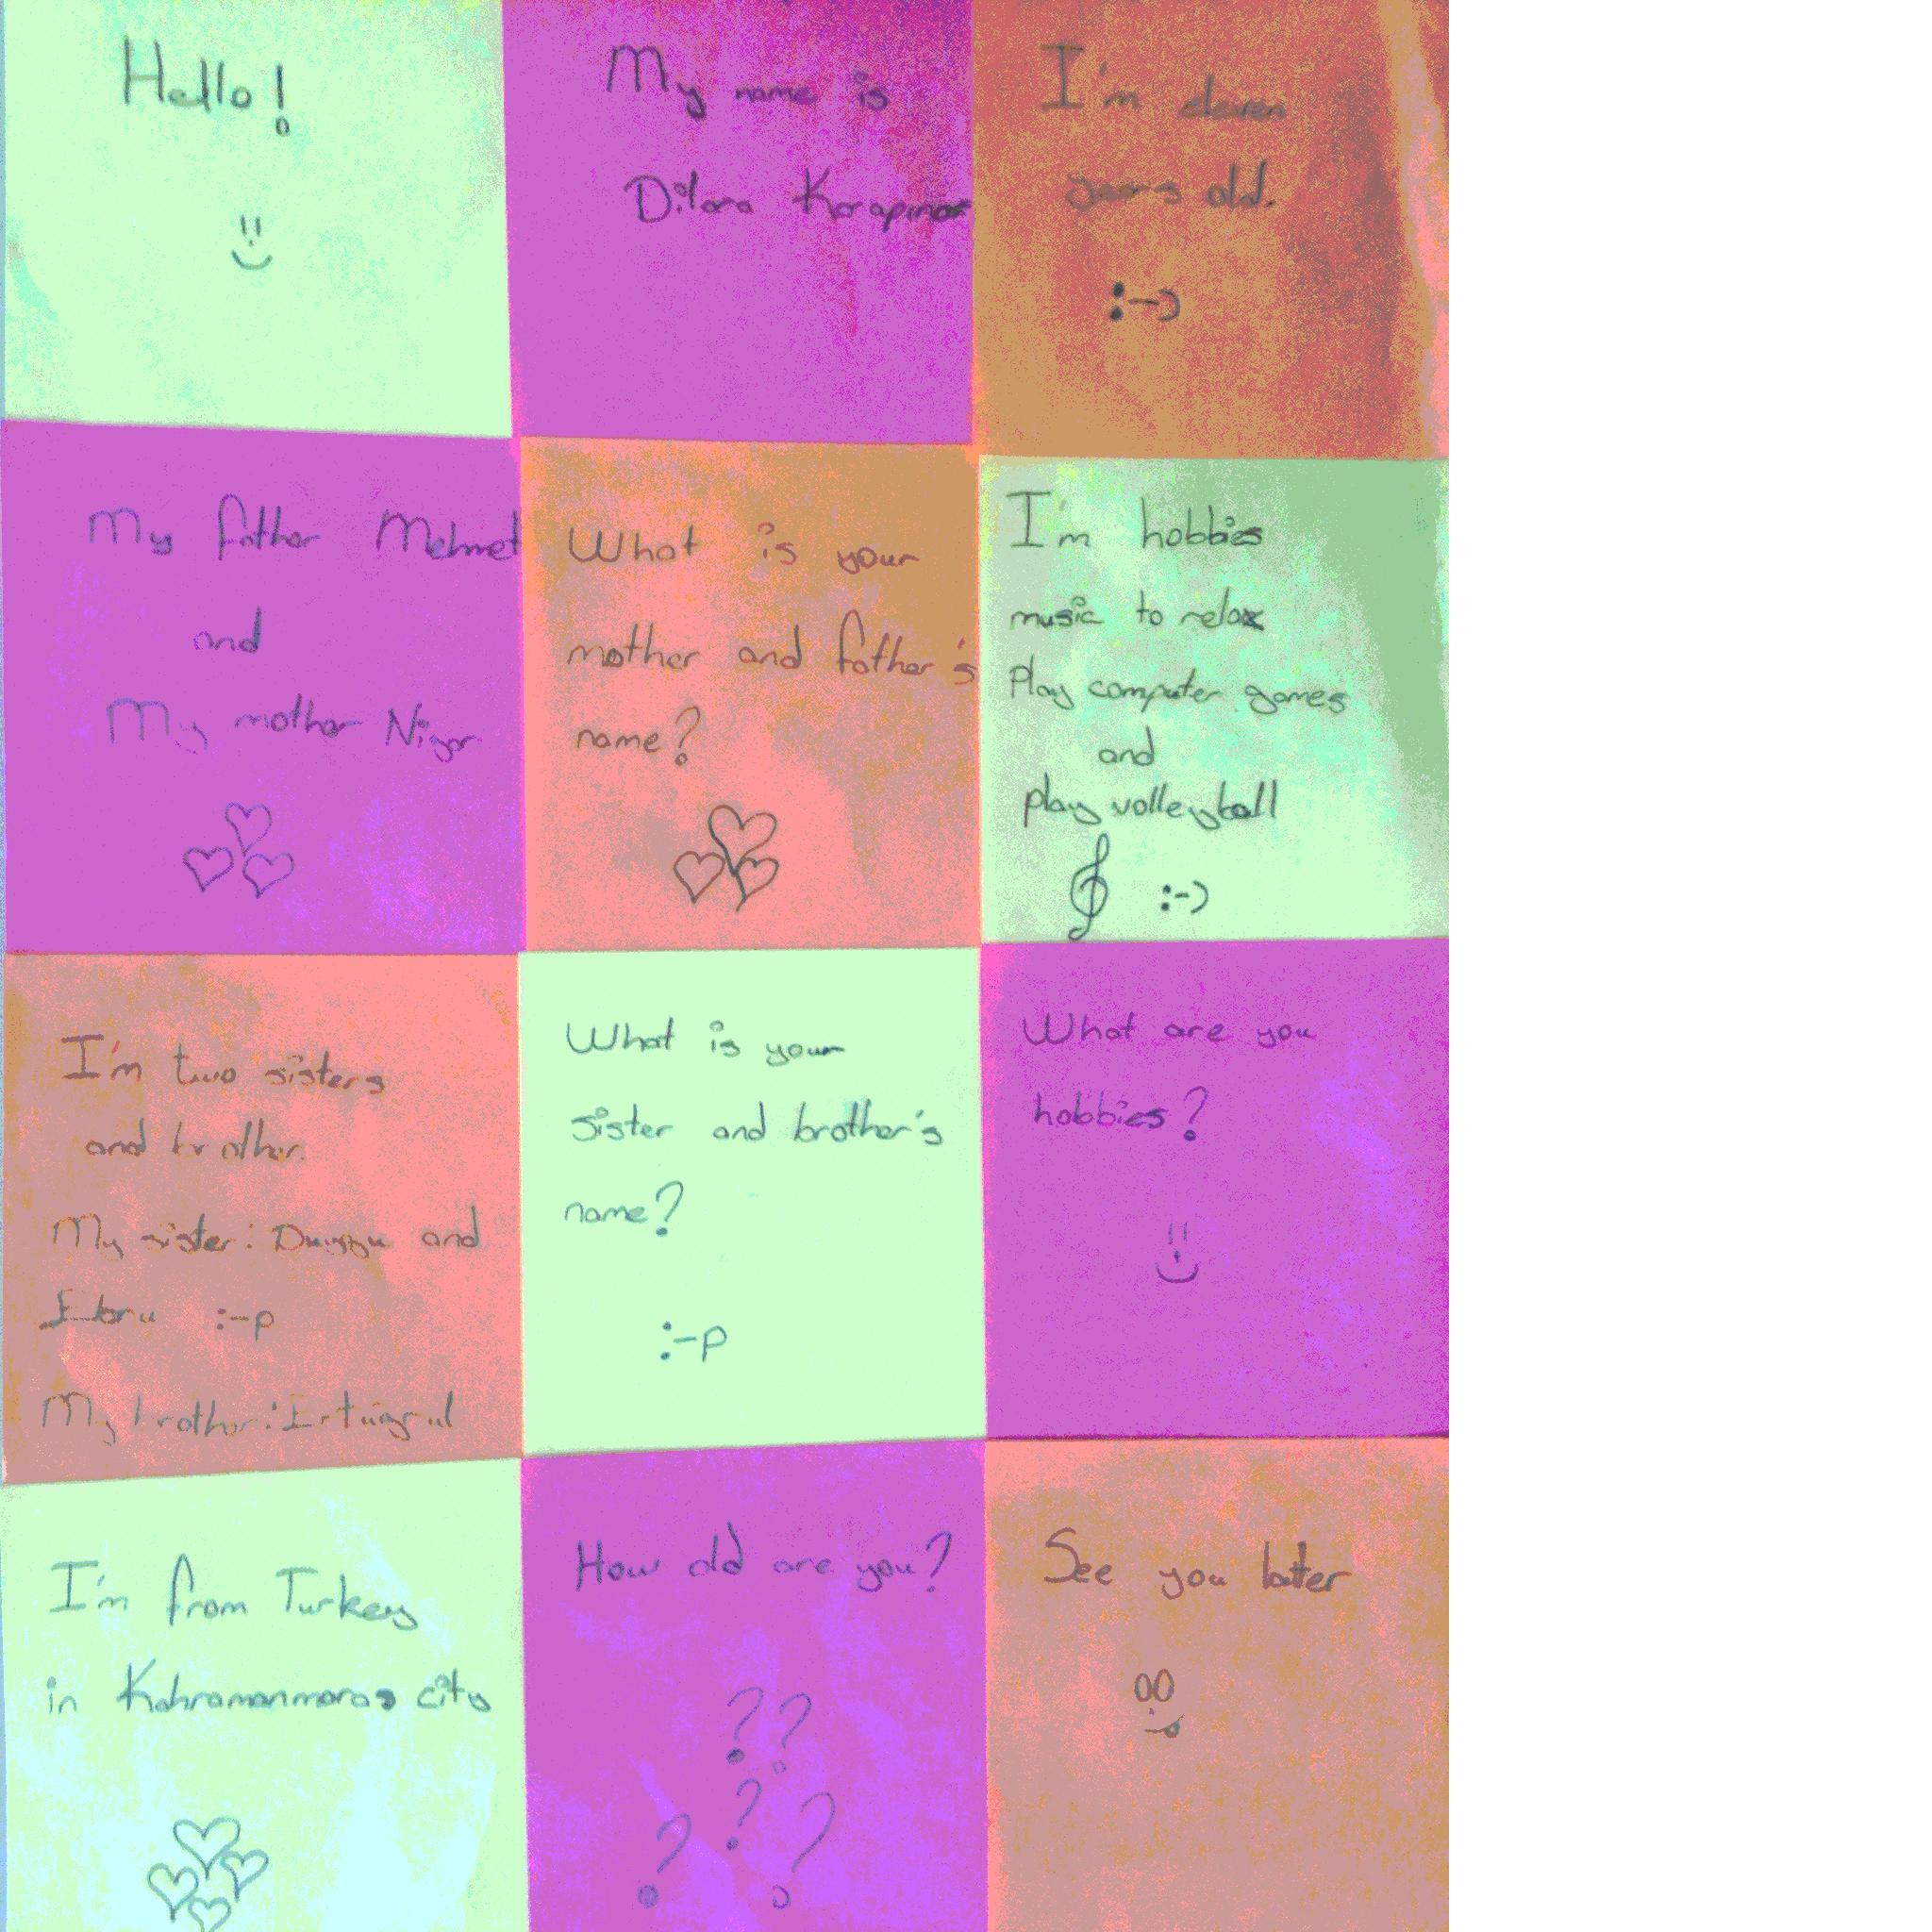 Hello!
My name is
Dilara Karapınar
I'm eleven
years old.
:-)
My father Mehmet
and
My mother Nigar
What is your
mother and father's
name?
I'm hobbies
music to relax
Play computer games
and
play volleyball
:-)
I'm two sisters
and brother.
My sister: Duygu and
Ebru :-p
My brother: Ertuğrul
What is your
sister and brother's
name?
:-p
What are you
hobbies?
I'm from Turkey
in Kahramanmaraş city
How old are you?
??
?
? ?
See you later